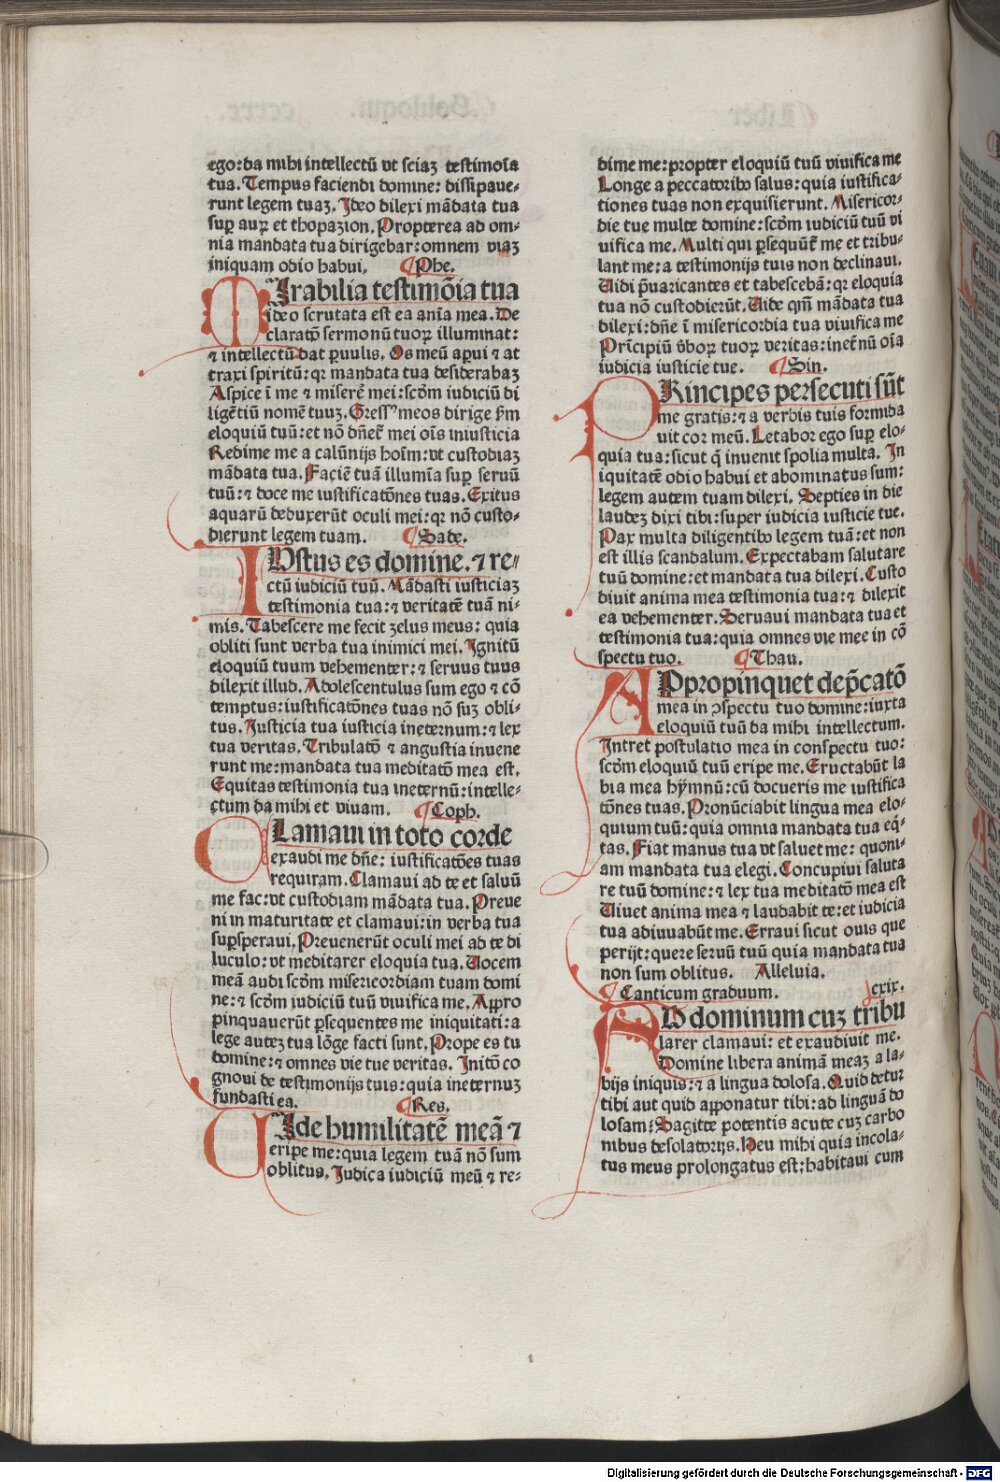 ego:da mihi intellectū vt sciaꝫ testimoīa
tua. Tempus faciendi domine: dissipaue-
runt legem tuaꝫ. Ideo dilexi mādata tua
suꝑ auꝝ et thopazion. Propterea ad om-
nia mandata tua dirigebar: omnem viaꝫ
iniquam odio habui. ¶Phe.
MIrabilia testimōia tua
ideo scrutata est ea anīa mea. De
claratō sermonū tuoꝝ illuminat:
⁊ intellectū dat ꝑuulis. Os meū aꝑui ⁊ at
traxi spiritū: qꝛ mandata tua desiderabaꝫ
Aspice ī me ⁊ miserē mei: scd̄m iudiciū di
ligētiū nomē tuuꝫ. Gressꝰ meos dirige ẜm
eloquiū tuū: et nō dn̄eƭ mei oīs iniusticia
Redime me a calūnijs hoīm: vt custodiaꝫ
mādata tua. Faciē tuā illumīa suꝑ seruū
tuū: ⁊ doce me iustificatōnes tuas. Exitus
aquarū deduxerūt oculi mei: qꝛ nō custo-
dierunt legem tuam. ¶Sade.
IVstus es domine. ⁊ re-
ctū iudiciū tuū. Mādasti iusticiaꝫ
testimonia tua: ⁊ veritatē tuā ni-
mis. Tabescere me fecit zelus meus: quia
obliti sunt verba tua inimici mei. Ignitū
eloquiū tuum vehementer: ⁊ seruus tuus
dilexit illud. Adolescentulus sum ego ⁊ cō
temptus: iustificatōnes tuas nō suꝫ obli-
tus. Justicia tua iusticia ineternum: ⁊ lex
tua veritas. Tribulatō ⁊ angustia inuene
runt me: mandata tua meditatō mea est.
Equitas testimonia tua ineternū: intelle-
ctum da mihi et viuam. ¶Coph.
CLamaui in toto corde
exaudi me dn̄e: iustificatōes tuas
requiram. Clamaui ad te et saluū
me fac: vt custodiam mādata tua. Preue
ni in maturitate et clamaui: in verba tua
suꝑsperaui. Preuenerūt oculi mei ad te di
luculo: vt meditarer eloquia tua. Uocem
meā audi scd̄m misericordiam tuam domi
ne: ⁊ scd̄m iudiciū tuū viuifica me. Appro
pinquauerūt ꝑsequentes me iniquitati: a
lege autēꝫ tua lōge facti sunt. Prope es tu
domine: ⁊ omnes vie tue veritas. Initō co
gnoui de testimonijs tuis: quia ineternuꝫ
fundasti ea. ¶Res.
UIde humilitatē meā ⁊
eripe me: quia legem tuā nō sum
oblitus. Iudica iudiciū meū ⁊ re-
dime me: propter eloquiū tuū viuifica me
Longe a peccatoribꝰ salus: quia iustifica-
tiones tuas non exquisierunt. Misericor-
die tue multe domine: scd̄m iudiciū tuū vi
uifica me. Multi qui ꝑsequūƭ me et tribu-
lant me: a testimonijs tuis non declinaui.
Uidi p̄uaricantes et tabescebā: qꝛ eloquia
tua nō custodierūt. Uide qm̄ mādata tua
dilexi: dn̄e ī misericordia tua viuifica me
Prīcipiū v̓boꝝ tuoꝝ veritas: ineƭnū oīa
iudicia iusticie tue. ¶Sin.
PRincipes persecuti sūt
me gratis: ⁊ a verbis tuis formida
uit cor meū. Letabor ego suꝑ elo-
quia tua: sicut q̄ inuenit spolia multa. In
iquitatē odio habui et abominatus sum:
legem autem tuam dilexi. Septies in die
laudeꝫ dixi tibi: super iudicia iusticie tue.
Pax multa diligentibꝰ legem tuā: et non
est illis scandalum. Expectabam salutare
tuū domine: et mandata tua dilexi. Custo
diuit anima mea testimonia tua: ⁊ dilexit
ea vehementer. Seruaui mandata tua et
testimonia tua: quia omnes vie mee in cō
spectu tuo. ¶Thau.
APpropinquet dep̄catō
mea in ꝯspectu tuo domine: iuxta
eloquiū tuū da mihi intellectum.
Intret postulatio mea in conspectu tuo:
scd̄m eloquiū tuū eripe me. Eructabūt la
bia mea hymnū: cū docueris me iustifica
tōnes tuas. Pronūciabit lingua mea elo-
quium tuū: quia omnia mandata tua eq̄-
tas. Fiat manus tua vt saluet me: quoni-
am mandata tua elegi. Concupiui saluta
re tuū domine: ⁊ lex tua meditatō mea est
Uiuet anima mea ⁊ laudabit te: et iudicia
tua adiuuabūt me. Erraui sicut ouis que
perijt: quere seruū tuū quia mandata tua
non sum oblitus. Alleluia.
¶Canticum graduum. cxix.
AD dominum cuꝫ tribu
larer clamaui: et exaudiuit me.
Domine libera animā meaꝫ a la-
bijs iniquis: ⁊ a lingua dolosa. Quid detur
tibi aut quid apponatur tibi: ad linguā do
losam: Sagitte potentis acute cuꝫ carbo
nibus desolatorijs. Heu mihi quia incola-
tus meus prolongatus est: habitaui cum
Digitalisierung gefördert durch die Deutsche Forschungsgemeinschaft - DFG